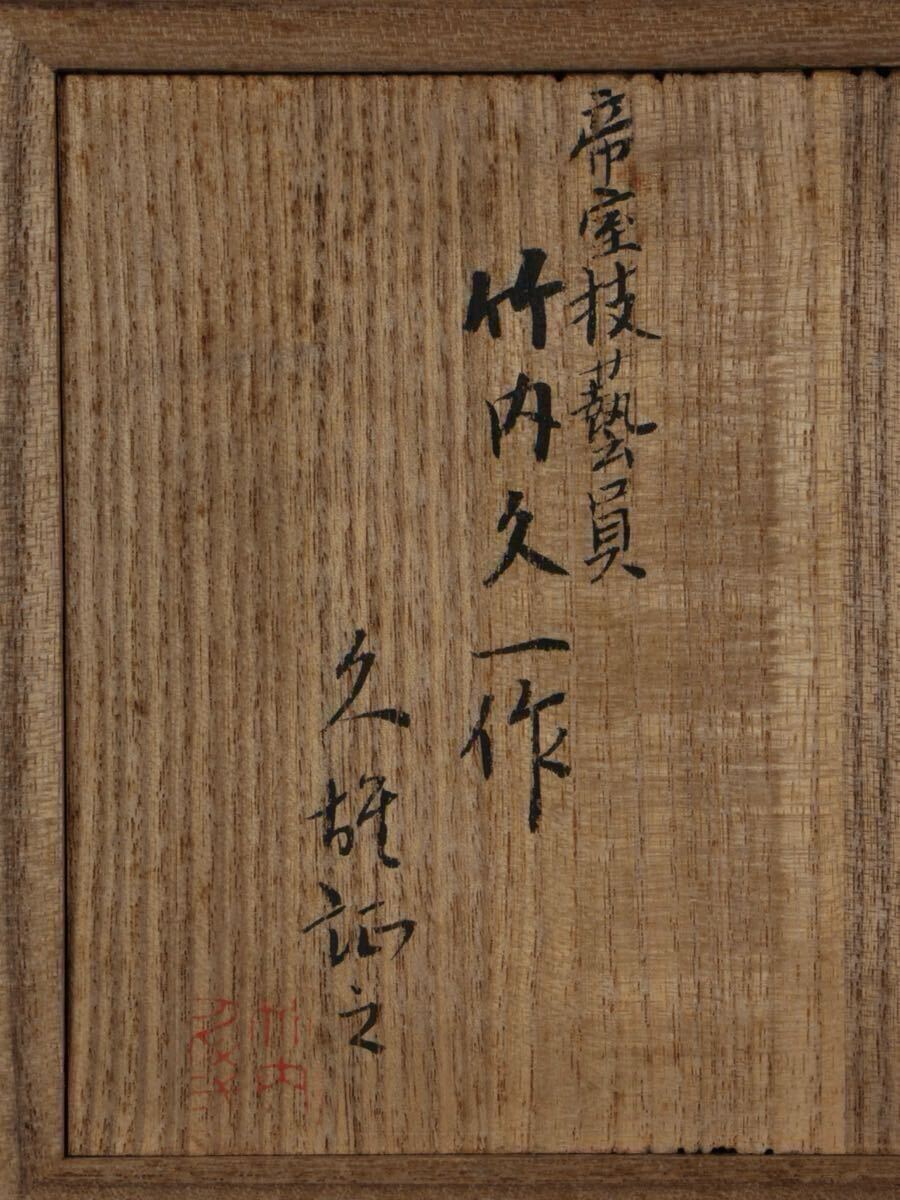 帝室技藝員
竹内久一作
久雄証之
竹内